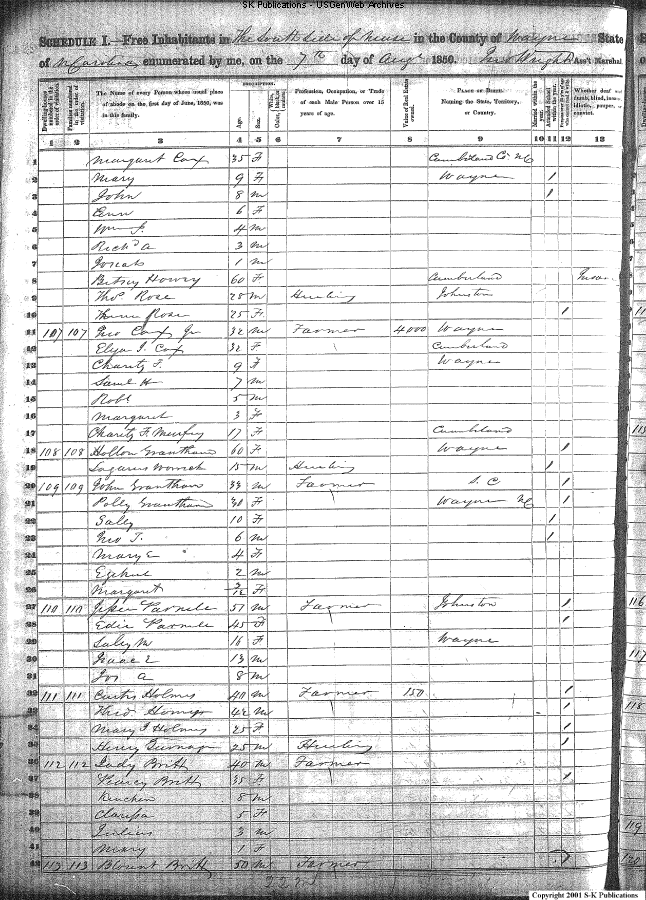 SK Publications - USGenWeb Archives
SCHEDULE I.—Free Inhabitants in The South Side of Neuse in the County of Wayne State
of N Carolina enumerated by me, on the 7th day of Augt 1850. Ass't Marshal
Dwelling-houses numbered in the order of visitation.
Families numbered in the order of visitation.
The Name of every Person whose usual place of abode on the first day of June, 1850, was in this family.
DESCRIPTION.
Age.
Sex.
Color, White, black, or mulatto.
Profession, Occupation, or Trade of each Male Person over 15 years of age.
Value of Real Estate owned.
PLACE OF BIRTH. Naming the State, Territory, or Country.
Married within the year.
Attended School within the year.
Whether deaf and dumb, blind, insane, idiotic, pauper, or convict.
1 2 3 4 5 6 7 8 9 10 11 12 13
1 Margaret Cox 35 F Cumberland Co NC
2 Mary 9 F Wayne /
3 John 8 M /
4 Ann 6 F
5 Wm J. 4 M
6 Richd A 3 M
7 Josiah 1 M
8 Betsey Howry 60 F Cumberland
9 Thos Rose 28 M Hireling Johnston
10 Rose 25 F /
11 107 107 Cox Jr 32 M Farmer 4000 Wayne
12 Eliza J. Cox 32 F Cumberland
13 Charity F. 9 F Wayne
14 Saml H 7 M
15 Robt 5 M
16 Margaret 3 F
17 Charity F. Murfrey 17 F Cumberland
18 108 108 Hollon Grantham 60 F Wayne /
19 15 M Hireling /
20 109 109 John Grantham 33 M Farmer S. C /
21 Polly Grantham 30 F Wayne NC /
22 Sally 10 F /
23 6 M /
24 Mary E 4 F
25 2 M
26 Margaret F
27 110 110 51 M Farmer Johnston /
28 Edie 45 F /
29 Sally M 16 F Wayne
30 Isaac L 13 M
31 Jos A 8 M
32 111 111 Curtis Holmes 40 M Farmer 150 /
33 42 M /
34 Mary J Holmes 25 F /
35 Henry 25 M Hireling /
36 112 112 Britt 40 M Farmer
37 Britt 35 F /
38 8 M
39 Clarissa 5 F
40 Julius 3 M
41 Mary 1 F
42 113 113 Blount Britt 50 M Farmer
116
117
118
119
120
Copyright 2001 S-K Publications